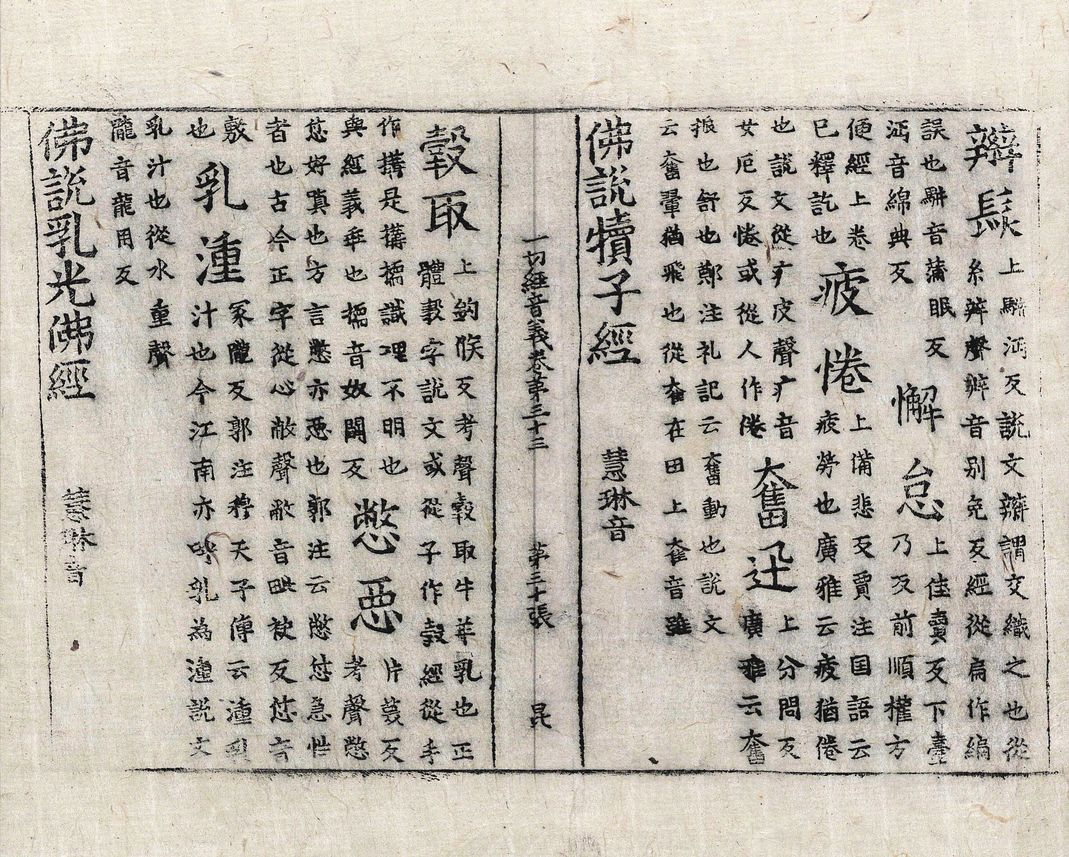 辮䰂上駢沔反說文辮謂交織之也從
糸辡聲辡音別免反經從扁作編
誤也駢音蒲眠反
沔音綿典反
懈怠上佳賣反下臺
乃反前順權方
便經上卷
已釋訖也
疲惓上備悲反賈注国語云
疲勞也廣雅云疲猶倦
也說文從疒皮聲疒音
女厄反惓或從人作倦
奮迅上分問反
廣雅云奮
振也舒也鄭注礼記云奮動也說文
云奮翬猶飛也從奞在田上奞音雖
佛說犢子經 慧琳音
一切經音義卷第三十三 第三十張 昆
㝅取上鉤候反考聲㝅取牛羊乳也正
體㝅字說文或從子作㝅經從手
作搆是搆㨎識理不明也
與經義乖也㨎音奴鬪反
憋惡片蔑反
考聲憋
怤好嗔也方言憋亦惡也郭注云憋怤急性
者也古今正字從心敝聲敝音毗袂反怤音
敷
也
乳湩冢隴反郭注穆天子傳云湩乳
汁也今江南亦呼乳為湩說文
乳汁也從水重聲
隴音龍用反
佛說乳光佛經 慧琳音